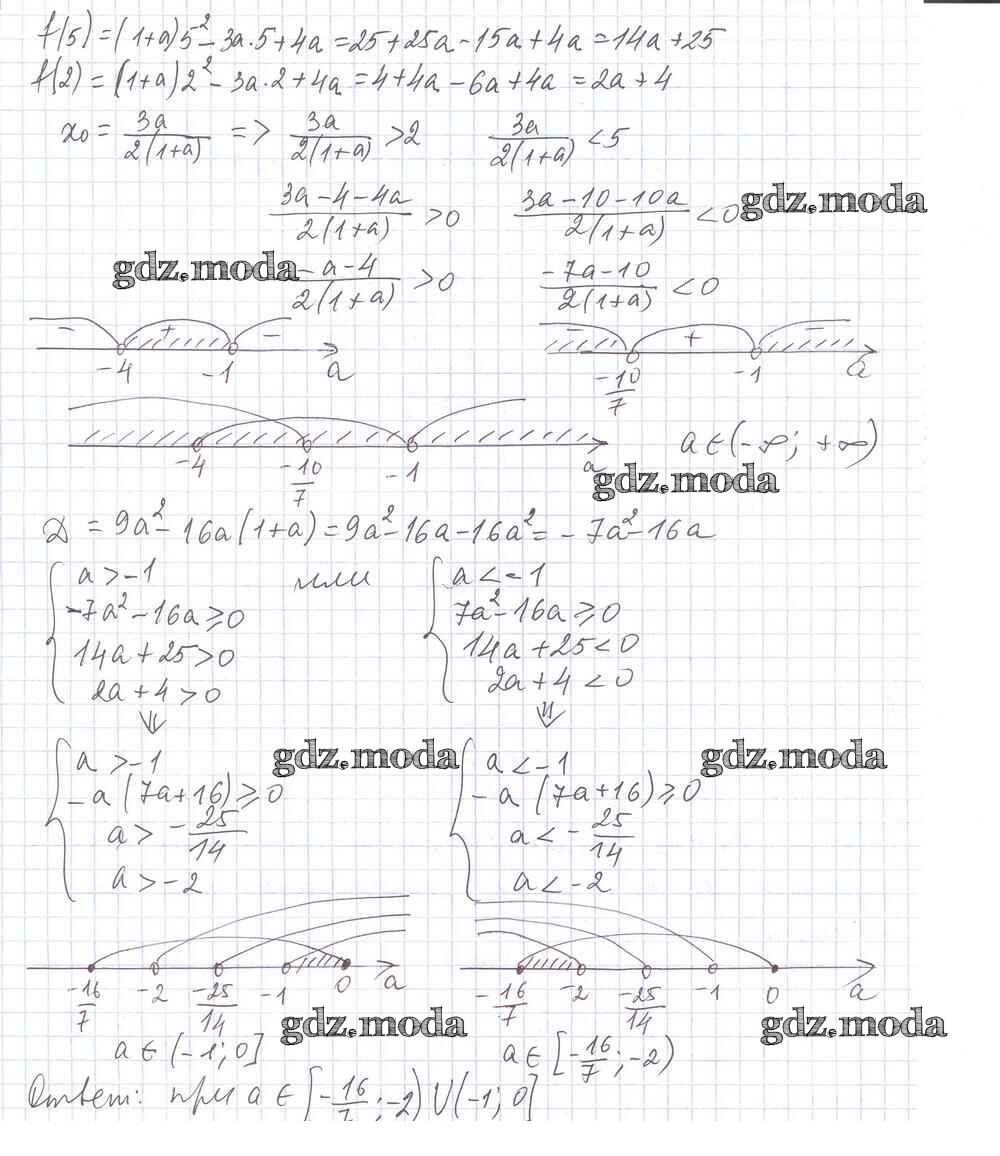 f(5) = (1+a)5² - 3a·5 + 4a = 25 + 25a - 15a + 4a = 14a + 25
f(2) = (1+a)2² - 3a·2 + 4a = 4 + 4a - 6a + 4a = 2a + 4
x₀ = 3a/2(1+a) => 3a/2(1+a) > 2 3a/2(1+a) < 5
3a-4-4a/2(1+a) > 0 3a-10-10a/2(1+a) < 0 gdz.moda
gdz.moda -a-4/2(1+a) > 0 -7a-10/2(1+a) < 0
- + - - + -
-4 -1 a -10/7 -1 a
-4 -10/7 -1 a a ∈ (-∞; +∞)
gdz.moda
D = 9a² - 16a(1+a) = 9a² - 16a - 16a² = -7a² - 16a
a > -1 или a < -1
-7a² - 16a ≥ 0 7a² - 16a ≥ 0
14a + 25 > 0 14a + 25 < 0
2a + 4 > 0 2a + 4 < 0
⇓ ⇓
a > -1 gdz.moda a < -1 gdz.moda
-a(7a+16) ≥ 0 -a(7a+16) ≥ 0
a > -25/14 a < -25/14
a > -2 a < -2
-16/7 -2 -25/14 -1 0 a -16/7 -2 -25/14 -1 0 a
gdz.moda gdz.moda
a ∈ (-1; 0] a ∈ [-16/7; -2)
Ответ: при a ∈ [-16/7; -2) ∪ (-1; 0]